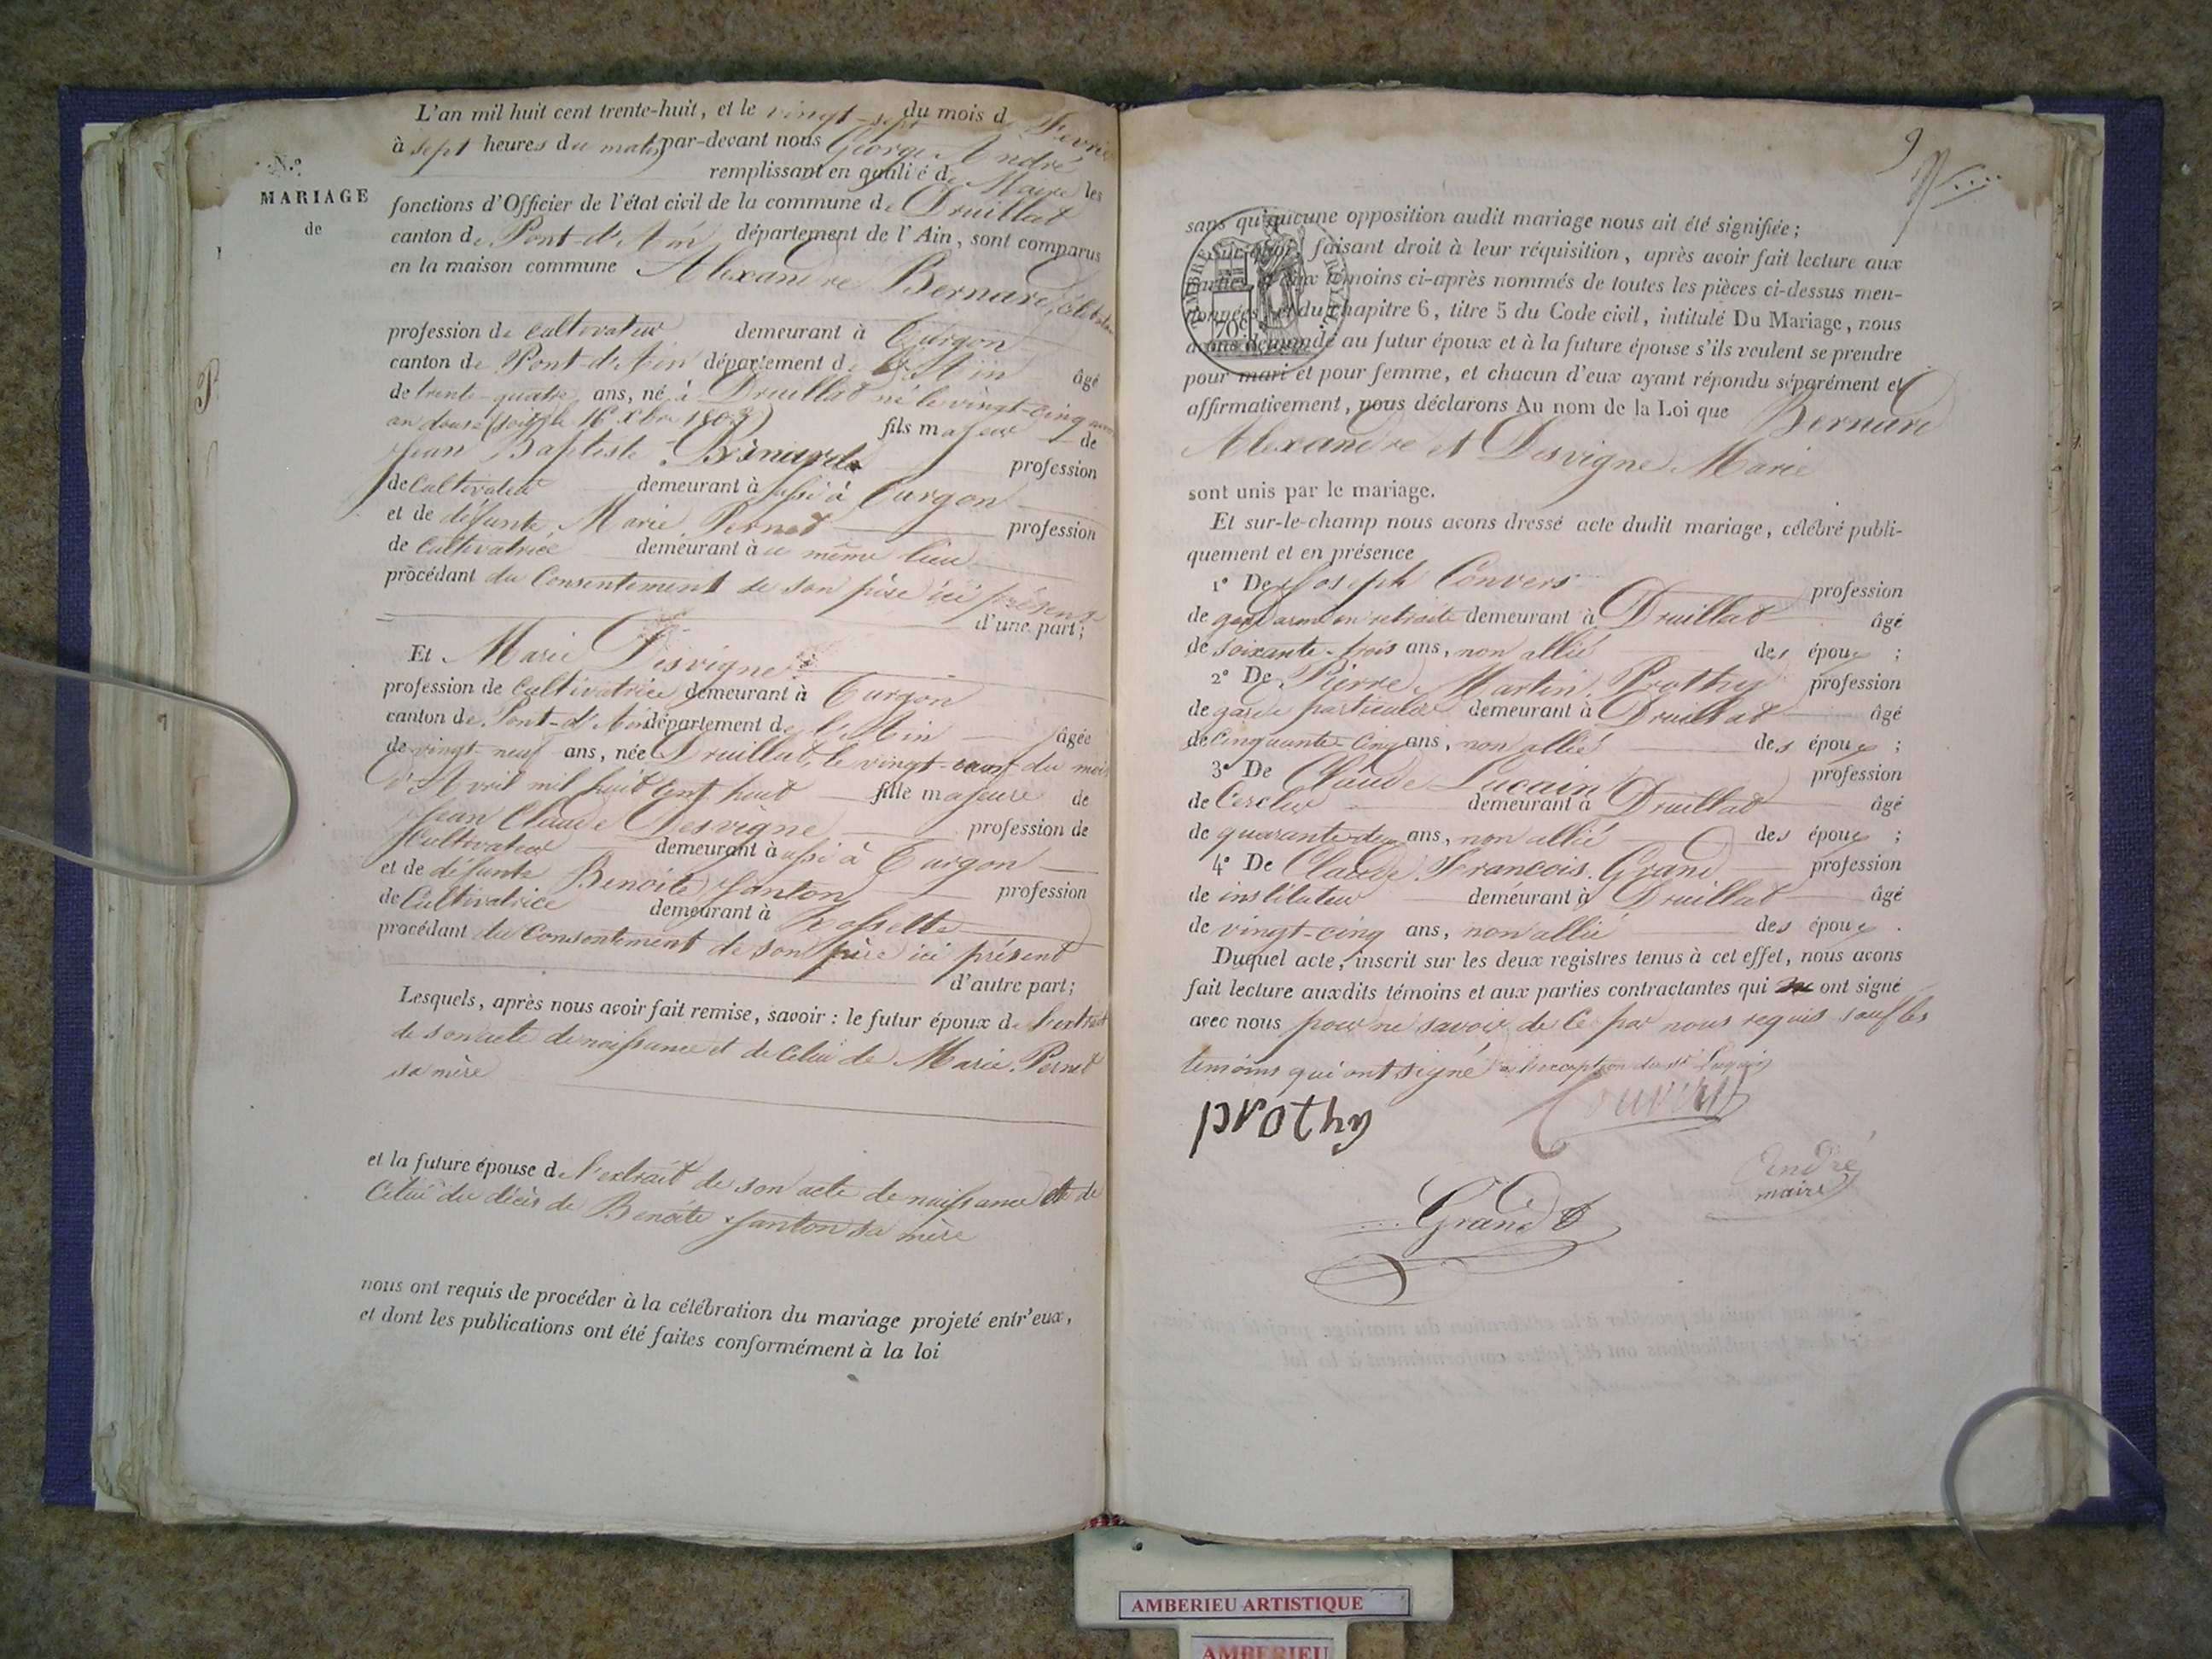 N.o
MARIAGE
de
L'an mil huit cent trente-huit, et le vingt-sept du mois de Fevrier
à sept heures du matin par-devant nous George André
remplissant en qualité de Maire les
fonctions d'Officier de l'état civil de la commune de Druillat
canton de Pont-d'Ain, département de l'Ain, sont comparus
en la maison commune Alexandre Bernard,
profession de cultivateur demeurant à Turgon
canton de Pont-d'Ain département de l'Ain âgé
de trente-quatre ans, né à Druillat né le vingt-cinq
an douze (soit le 16 Xbre 1803) fils majeur de
Jean Baptiste Bernard profession
de Cultivateur demeurant à aussi à Turgon
et de défunte Marie Pernet profession
de Cultivatrice demeurant à u même lieu
procédant du Consentement de son père ici présent
d'une part;
Et Marie Desvigne
profession de Cultivatrice demeurant à Turgon
canton de Pont-d'Ain département de l'Ain âgée
de vingt-neuf ans, née Druillat, le vingt- du mois
d'Avril mil huit cent huit fille majeure de
Jean Claude Desvigne profession de
Cultivateur demeurant à aussi à Turgon
et de défunte Benoite Janton profession
de Cultivatrice demeurant à Rossette
procédant du Consentement de son père ici présent
d'autre part;
Lesquels, après nous avoir fait remise, savoir : le futur époux de l'extrait
de son acte de naissance et de Celui de Marie Pernet
sa mère
et la future épouse de l'extrait de son acte de naissance et de
Celui du décès de Benoite Janton sa mère
nous ont requis de procéder à la célébration du mariage projeté entr'eux,
et dont les publications ont été faites conformément à la loi
9
sans qu'aucune opposition audit mariage nous ait été signifiée;
Sur quoi, faisant droit à leur réquisition, après avoir fait lecture aux
parties et aux témoins ci-après nommés de toutes les pièces ci-dessus men-
données et du chapitre 6, titre 5 du Code civil, intitulé Du Mariage, nous
avons demandé au futur époux et à la future épouse s'ils veulent se prendre
pour mari et pour femme, et chacun d'eux ayant répondu séparément et
affirmativement, nous déclarons Au nom de la Loi que Bernard
Alexandre et Desvigne Marie
sont unis par le mariage.
Et sur-le-champ nous avons dressé acte dudit mariage, célébré publi-
quement et en présence
1° De Joseph Convers profession
de gendarme en retraite demeurant à Druillat âgé
de soixante-trois ans, non allié des époux ;
2° De Pierre Martin Prothy profession
de garde particulier demeurant à Druillat âgé
de Cinquante-Cinq ans, non allié des époux ;
3° De Claude profession
de Cerclier demeurant à Druillat âgé
de quarante-deux ans, non allié des époux ;
4° De Claude Francois Grand profession
de instituteur demeurant à Druillat âgé
de vingt-cinq ans, non allié des époux .
Duquel acte, inscrit sur les deux registres tenus à cet effet, nous avons
fait lecture auxdits témoins et aux parties contractantes qui ont signé
avec nous pour ne savoir de Ce par nous requis sauf les
témoins qui ont signé à l'exception du Sr
André
maire
Grand
TIMBRE ROYAL
70c
AMBERIEU ARTISTIQUE
AMBERIEU